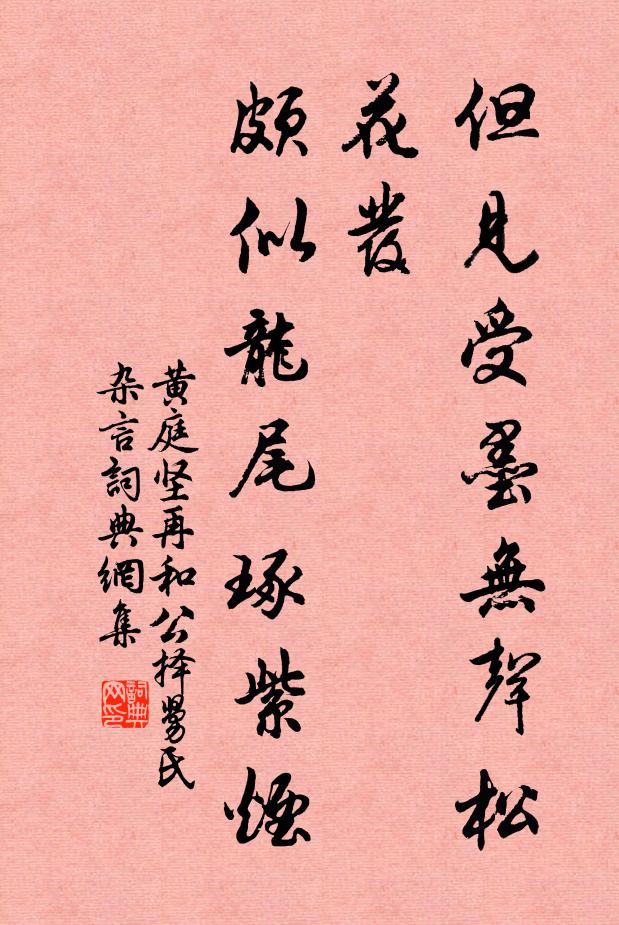 但見受墨無聲松
花發
頗似龍尾琢紫煙
黄庭坚再和公择舅氏
杂言詞典網集
詞典網印